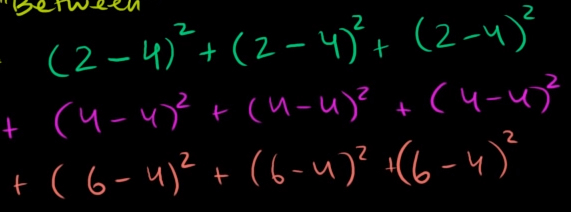 "Between
(2-4)² + (2-4)² + (2-4)²
+ (4-4)² + (4-4)² + (4-4)²
+ (6-4)² + (6-4)² + (6-4)²